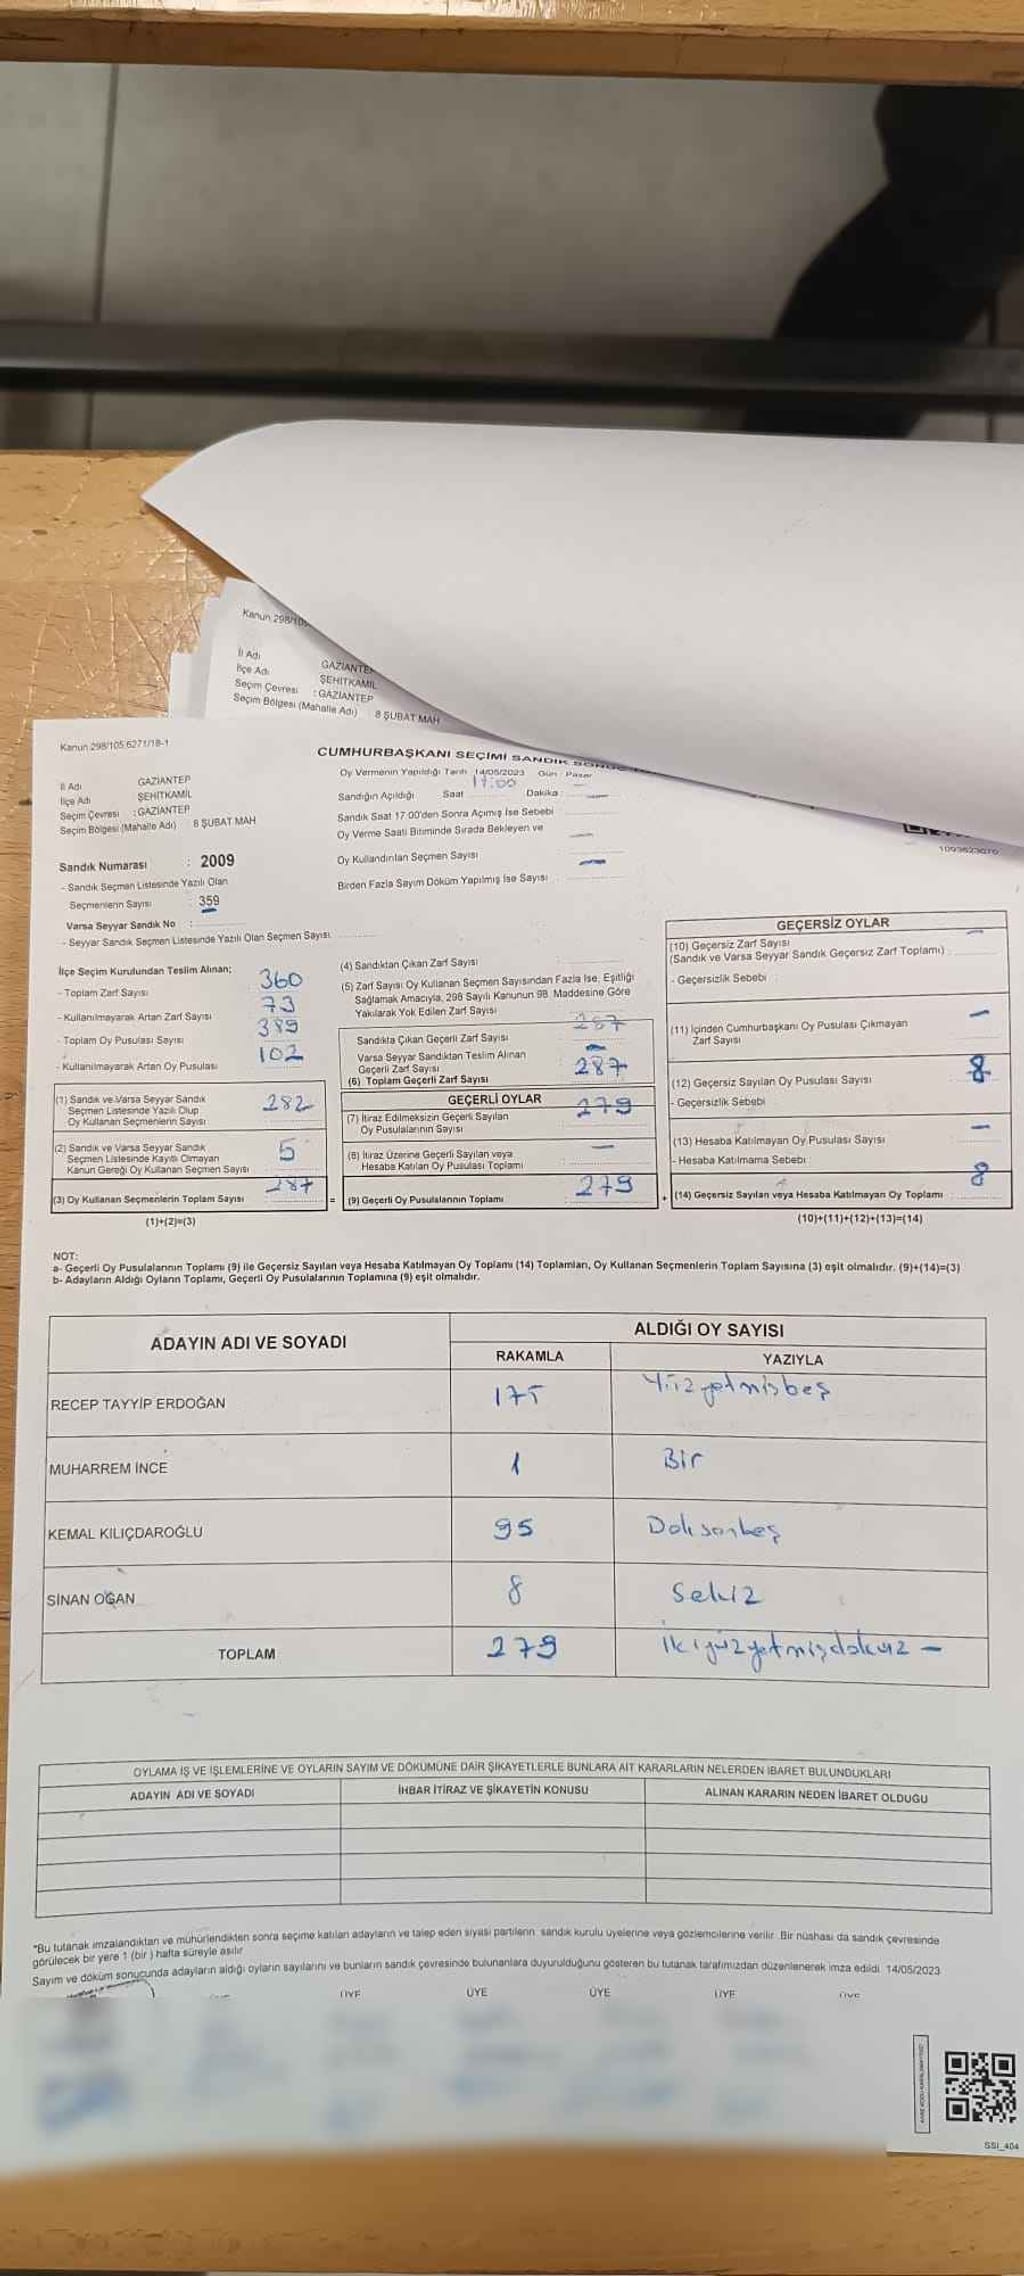 Kanun 298/105
İl Adı
GAZİANTEP
İlçe Adı
ŞEHİTKAMİL
Seçim Çevresi : GAZİANTEP
Seçim Bölgesi (Mahalle Adı) 8 ŞUBAT MAH
Kanun 298/105.6271/18-1
CUMHURBAŞKANI SEÇİMİ SANDIK
İl Adı GAZİANTEP
İlçe Adı ŞEHİTKAMİL
Seçim Çevresi : GAZİANTEP
Seçim Bölgesi (Mahalle Adı) 8 ŞUBAT MAH
Oy Vermenin Yapıldığı Tarih 14/05/2023 Gün Pazar
17:00
Sandığın Açıldığı Saat Dakika
Sandık Saat 17.00'den Sonra Açılmış İse Sebebi
Oy Verme Saati Bitiminde Sırada Bekleyen ve
Oy Kullandırılan Seçmen Sayısı
Birden Fazla Sayım Döküm Yapılmış İse Sayısı
1093623070
Sandık Numarası : 2009
- Sandık Seçmen Listesinde Yazılı Olan
Seçmenlerin Sayısı : 359
Varsa Seyyar Sandık No :
- Seyyar Sandık Seçmen Listesinde Yazılı Olan Seçmen Sayısı
İlçe Seçim Kurulundan Teslim Alınan;
- Toplam Zarf Sayısı 360
- Kullanılmayarak Artan Zarf Sayısı 73
- Toplam Oy Pusulası Sayısı 389
- Kullanılmayarak Artan Oy Pusulası 102
(1) Sandık ve Varsa Seyyar Sandık
Seçmen Listesinde Yazılı Olup
Oy Kullanan Seçmenlerin Sayısı 282
(2) Sandık ve Varsa Seyyar Sandık
Seçmen Listesinde Kayıtlı Olmayan
Kanun Gereği Oy Kullanan Seçmen Sayısı 5
(3) Oy Kullanan Seçmenlerin Toplam Sayısı 287
(1)+(2)=(3)
(4) Sandıktan Çıkan Zarf Sayısı
(5) Zarf Sayısı Oy Kullanan Seçmen Sayısından Fazla İse, Eşitliği
Sağlamak Amacıyla, 298 Sayılı Kanunun 98. Maddesine Göre
Yakılarak Yok Edilen Zarf Sayısı
Sandıkta Çıkan Geçerli Zarf Sayısı 287
Varsa Seyyar Sandıktan Teslim Alınan
Geçerli Zarf Sayısı
(6) Toplam Geçerli Zarf Sayısı 287
GEÇERLİ OYLAR
(7) İtiraz Edilmeksizin Geçerli Sayılan
Oy Pusulalarının Sayısı 279
(8) İtiraz Üzerine Geçerli Sayılan veya
Hesaba Katılan Oy Pusulası Toplamı —
= (9) Geçerli Oy Pusulalarının Toplamı 279
GEÇERSİZ OYLAR
(10) Geçersiz Zarf Sayısı
(Sandık ve Varsa Seyyar Sandık Geçersiz Zarf Toplamı) —
- Geçersizlik Sebebi :
(11) İçinden Cumhurbaşkanı Oy Pusulası Çıkmayan
Zarf Sayısı —
(12) Geçersiz Sayılan Oy Pusulası Sayısı 8
- Geçersizlik Sebebi
(13) Hesaba Katılmayan Oy Pusulası Sayısı —
- Hesaba Katılmama Sebebi
+ (14) Geçersiz Sayılan veya Hesaba Katılmayan Oy Toplamı 8
(10)+(11)+(12)+(13)=(14)
NOT:
a- Geçerli Oy Pusulalarının Toplamı (9) ile Geçersiz Sayılan veya Hesaba Katılmayan Oy Toplamı (14) Toplamları, Oy Kullanan Seçmenlerin Toplam Sayısına (3) eşit olmalıdır. (9)+(14)=(3)
b- Adayların Aldığı Oyların Toplamı, Geçerli Oy Pusulalarının Toplamına (9) eşit olmalıdır.
ADAYIN ADI VE SOYADI
ALDIĞI OY SAYISI
RAKAMLA YAZIYLA
RECEP TAYYİP ERDOĞAN 175 Yüzyetmişbeş
MUHARREM İNCE 1 Bir
KEMAL KILIÇDAROĞLU 95 Doksanbeş
SİNAN OĞAN 8 Sekiz
TOPLAM 279 ikiyüzyetmişdokuz —
OYLAMA İŞ VE İŞLEMLERİNE VE OYLARIN SAYIM VE DÖKÜMÜNE DAİR ŞİKAYETLERLE BUNLARA AİT KARARLARIN NELERDEN İBARET BULUNDUKLARI
ADAYIN ADI VE SOYADI İHBAR İTİRAZ VE ŞİKAYETİN KONUSU ALINAN KARARIN NEDEN İBARET OLDUĞU
*Bu tutanak imzalandıktan ve mühürlendikten sonra seçime katılan adayların ve talep eden siyasi partilerin sandık kurulu üyelerine veya gözlemcilerine verilir. Bir nüshası da sandık çevresinde
görülecek bir yere 1 (bir ) hafta süreyle asılır
Sayım ve döküm sonucunda adayların aldığı oyların sayılarını ve bunların sandık çevresinde bulunanlara duyurulduğunu gösteren bu tutanak tarafımızdan düzenlenerek imza edildi. 14/05/2023
ÜYE ÜYE ÜYE ÜYE ÜYE
SSI_404